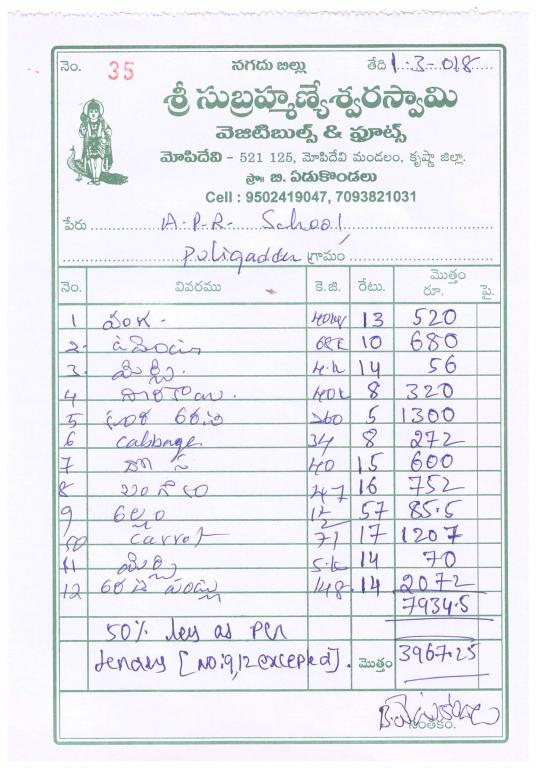 నెం. 35 నగదు బిల్లు తేది 1.3-018
శ్రీ సుబ్రహ్మణ్యేశ్వరస్వామి
వెజిటిబుల్స్ & ఫ్రూట్స్
మోపిదేవి - 521 125, మోపిదేవి మండలం, కృష్ణా జిల్లా.
ప్రొ॥ బి. ఏడుకొండలు
Cell : 9502419047, 7093821031
పేరు A.P.R. School,
Puligadda గ్రామం
నెం. వివరము కె.జి. రేటు. మొత్తం రూ. పై.
1 వంగ. 40kg 13 520
2. 68k 10 680
3. మిర్చి. 4.k 14 56
4 40k 8 320
5 260 5 1300
6 cabbage 34 8 272
7 దోస 40 15 600
8 47 16 752
9 అల్లం 1½ 57 85.5
10 carrot 71 17 1207
11 మిర్చి 5.k 14 70
12 అరటి పండ్లు 148. 14 2072
7934.5
50% less as per
tenders [NO:9,12 excepted]. మొత్తం 3967.25
B. ఏడుకొండలు
సంతకం.